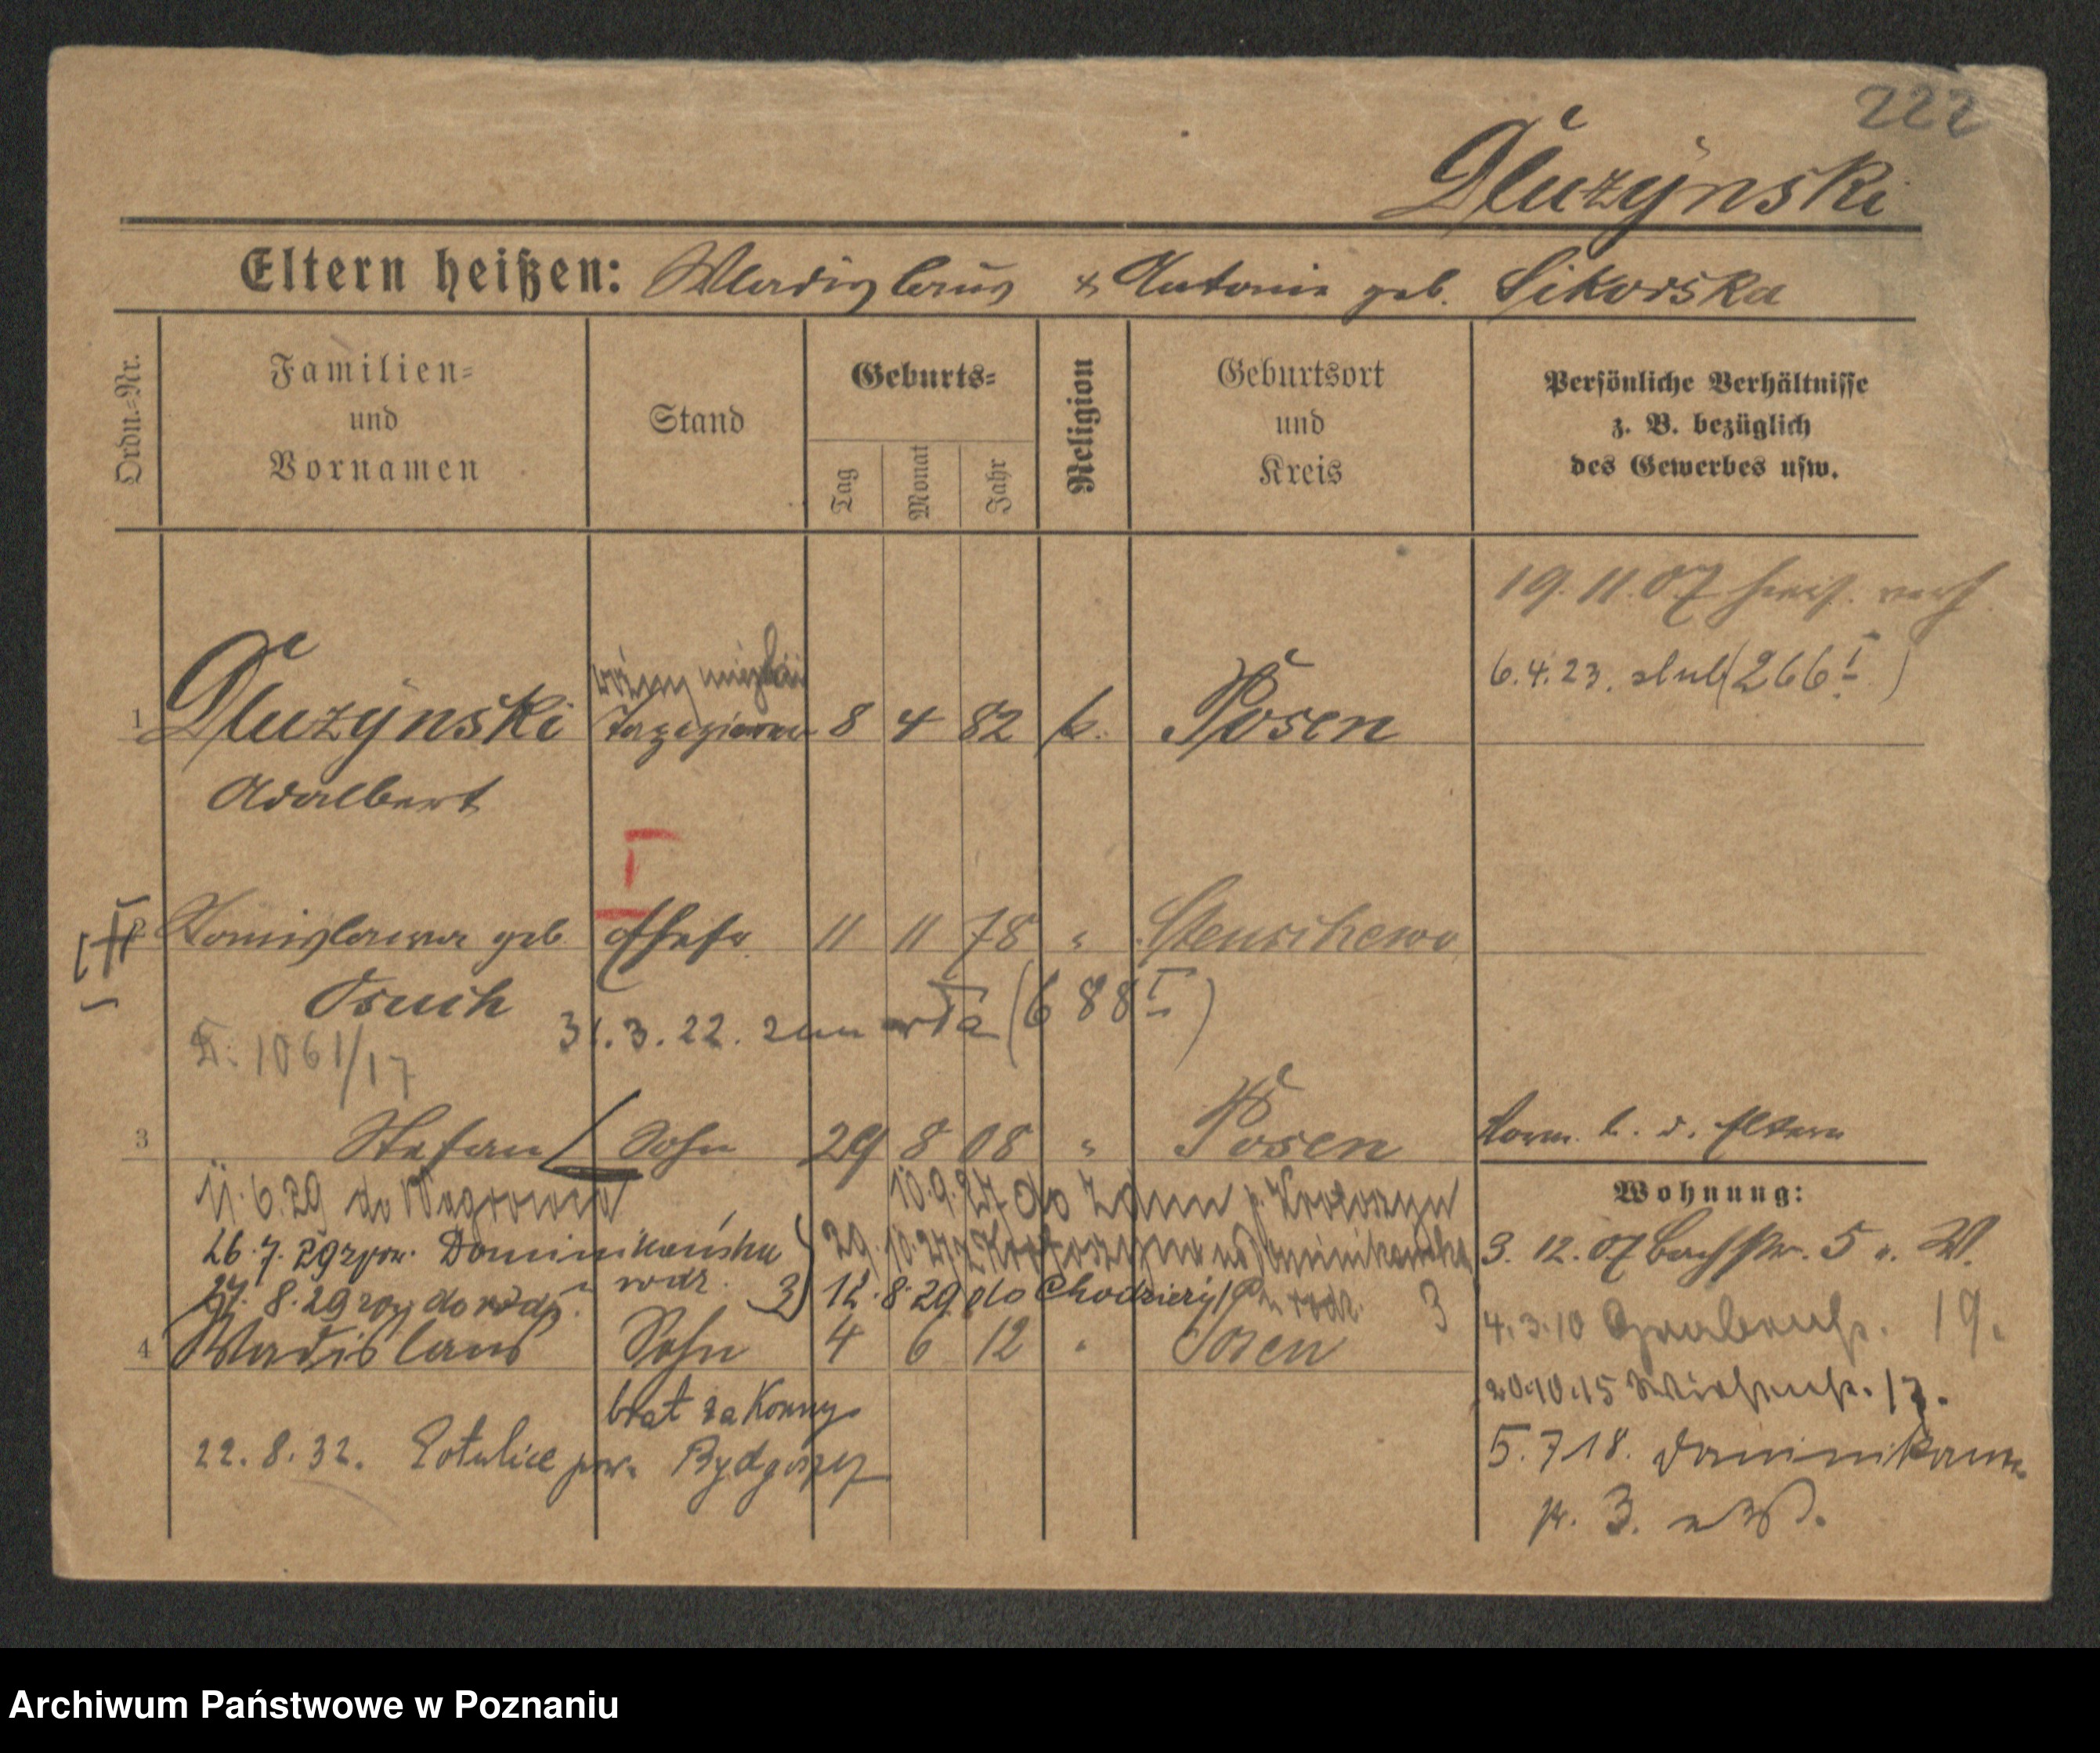 222
Dlużynski
Eltern heißen: Wladislaus & Antonie geb. Sikorska
Ordn.-Nr.
Familien- und Vornamen
Stand
Geburts-
Tag
Monat
Jahr
Religion
Geburtsort und Kreis
Persönliche Verhältnisse z. B. bezüglich des Gewerbes usw.
19. 11. 07
6.4.23. slub (266 I)
1 Dlużynski 8 4 82 k. Posen
Adalbert
I
2 Stanislawa geb. Ehefr. 11 11 78 " Stenschewo
31.3.22. (688 I)
1061/17
3 Stefan Sohn 29 8 08 " Posen
b. d. Eltern
11.6.29 do Wągrowca
10.9.27 do Zdun p. Krotoszyn
Wohnung:
26.7.29 Dominikańska
29.10.27 z Krotoszyna Dominikańska
3. 12. 07 Bachstr. 5 v. W.
rodz. 3)
27. 8. 29 do
12.8.29 do Chodzieży
rodz. 3
4.3.10 Grabenstr. 19.
4 Wladislaus Sohn 4 6 12 " Posen
20.10.15 Wiesenstr. 17.
brat zakonny
22.8.32. Potulice pow. Bydgoszcz
5.7.18. Dominikaner
str. 3.
Archiwum Państwowe w Poznaniu